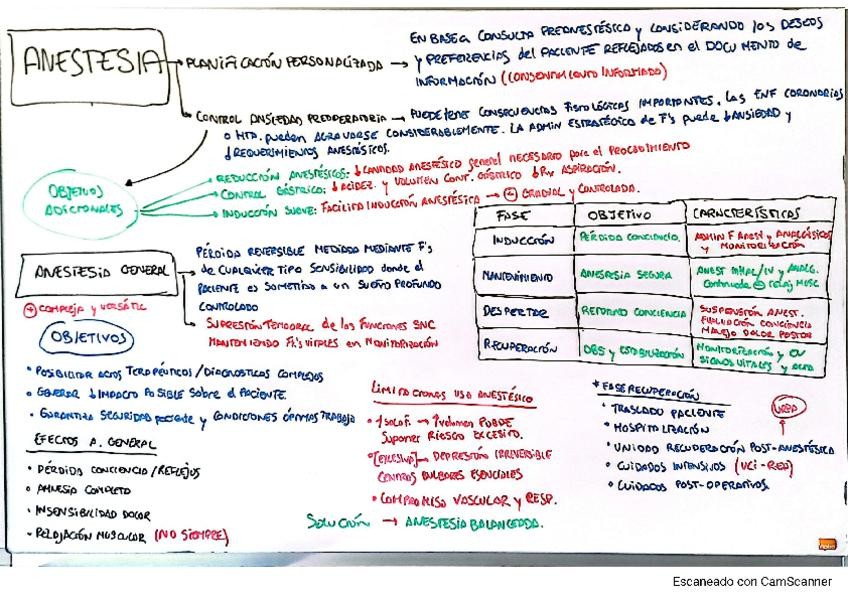 ANESTESIA
PLANIFICACIÓN PERSONALIZADA → EN BASE A CONSULTA PREANESTÉSICO y CONSIDERANDO los DESEOS
y PREFERENCIAS del PACIENTE REFLEJADOS en el DOCUMENTO de
INFORMACIÓN (CONSENTIMIENTO INFORMADO)
CONTROL ANSIEDAD PREOPERATORIA → PUEDE tener CONSECUENCIAS fisiológicas IMPORTANTES. Las ENF CORONARIAS
o HTA. pueden AGRAVARSE CONSIDERABLEMENTE. LA ADMIN ESTRATÉGICO de F's puede ↓ANSIEDAD y
↓REQUERIMIENTOS ANESTÉSICOS.
OBJETIVOS
ADICIONALES
REDUCCIÓN ANESTÉSICOS: ↓CANTIDAD ANESTÉSICO general NECESARIO para el PROCEDIMIENTO
CONTROL GÁSTRICO: ↓ACIDEZ y VOLUMEN CONT. GÁSTRICO ↓ ASPIRACIÓN.
INDUCCIÓN SUAVE: FACILITA INDUCCIÓN ANESTÉSICA → ⊕ GRADUAL y CONTROLADA.
FASE OBJETIVO CARACTERÍSTICAS
INDUCCIÓN PÉRDIDA CONCIENCIA. ADMIN F ANEST y ANALGÉSICOS
y MONITORIZACIÓN
MANTENIMIENTO ANESTESIA SEGURA ANEST INHAL/IV y ANALG.
Continuada ⊕ relaj MUSC
DESPERTAR RETORNO CONCIENCIA SUSPENSIÓN ANEST.
EVALUACIÓN CONCIENCIA
MANEJO DOLOR POSTOP
RECUPERACIÓN OBS y ESTABILIZACIÓN MONITORIZACIÓN y
SIGNOS VITALES y ALTA
ANESTESIA GENERAL
PÉRDIDA REVERSIBLE MEDIADA MEDIANTE F's
de CUALQUIER TIPO SENSIBILIDAD donde el
PACIENTE es SOMETIDO a UN SUEÑO PROFUNDO
CONTROLADO
SUPRESIÓN TEMPORAL de las FUNCIONES SNC
MANTENIENDO VITALES en MONITORIZACIÓN
⊕ COMPLEJA y VERSÁTIL
OBJETIVOS
• POSIBILITAR ACTOS TERAPÉUTICOS/DIAGNÓSTICOS COMPLEJOS
• GENERAR ↓IMPACTO POSIBLE SOBRE el PACIENTE.
• GARANTIZA SEGURIDAD paciente y CONDICIONES ÓPTIMAS TRABAJO
EFECTOS A. GENERAL
• PÉRDIDA CONCIENCIA/REFLEJOS
• AMNESIA COMPLETO
• INSENSIBILIDAD DOLOR
• RELAJACIÓN MUSCULAR (NO SIEMPRE)
LIMITACIONES USO ANESTÉSICO
• 1 SOLO F. → ↑Volumen PUEDE
Suponer RIESGO EXCESIVO.
• [EXCESIVA] → DEPRESIÓN IRREVERSIBLE
CENTROS BULBARES ESENCIALES
• COMPROMISO VASCULAR y RESP.
SOLUCIÓN → ANESTESIA BALANCEADA.
* FASE RECUPERACIÓN
• TRASLADO PACIENTE
• HOSPITALIZACIÓN
• UNIDAD RECUPERACIÓN POST-ANESTÉSICA
URPA
• CUIDADOS INTENSIVOS (UCI-REA)
• CUIDADOS POST-OPERATIVOS.
Escaneado con CamScanner